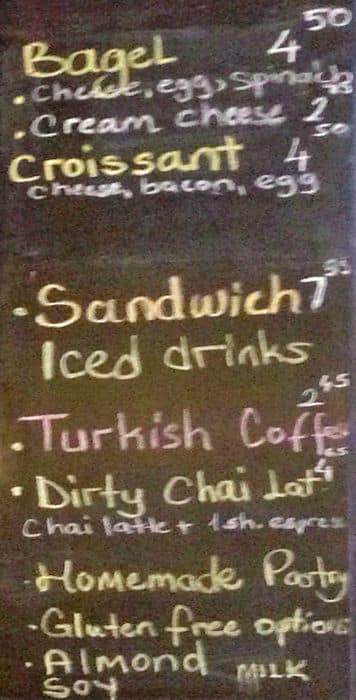 Bagel 4 50
. Cheese, egg, Spinach
. Cream cheese 2
Croissant 4 50
cheese, bacon, egg
. Sandwich 7 95
Iced drinks
. Turkish Coffee 2 45
. Dirty Chai Lat 4
Chai latte + 1sh. espres
. Homemade Pastry
- Gluten free options
. Almond MILK
Soy